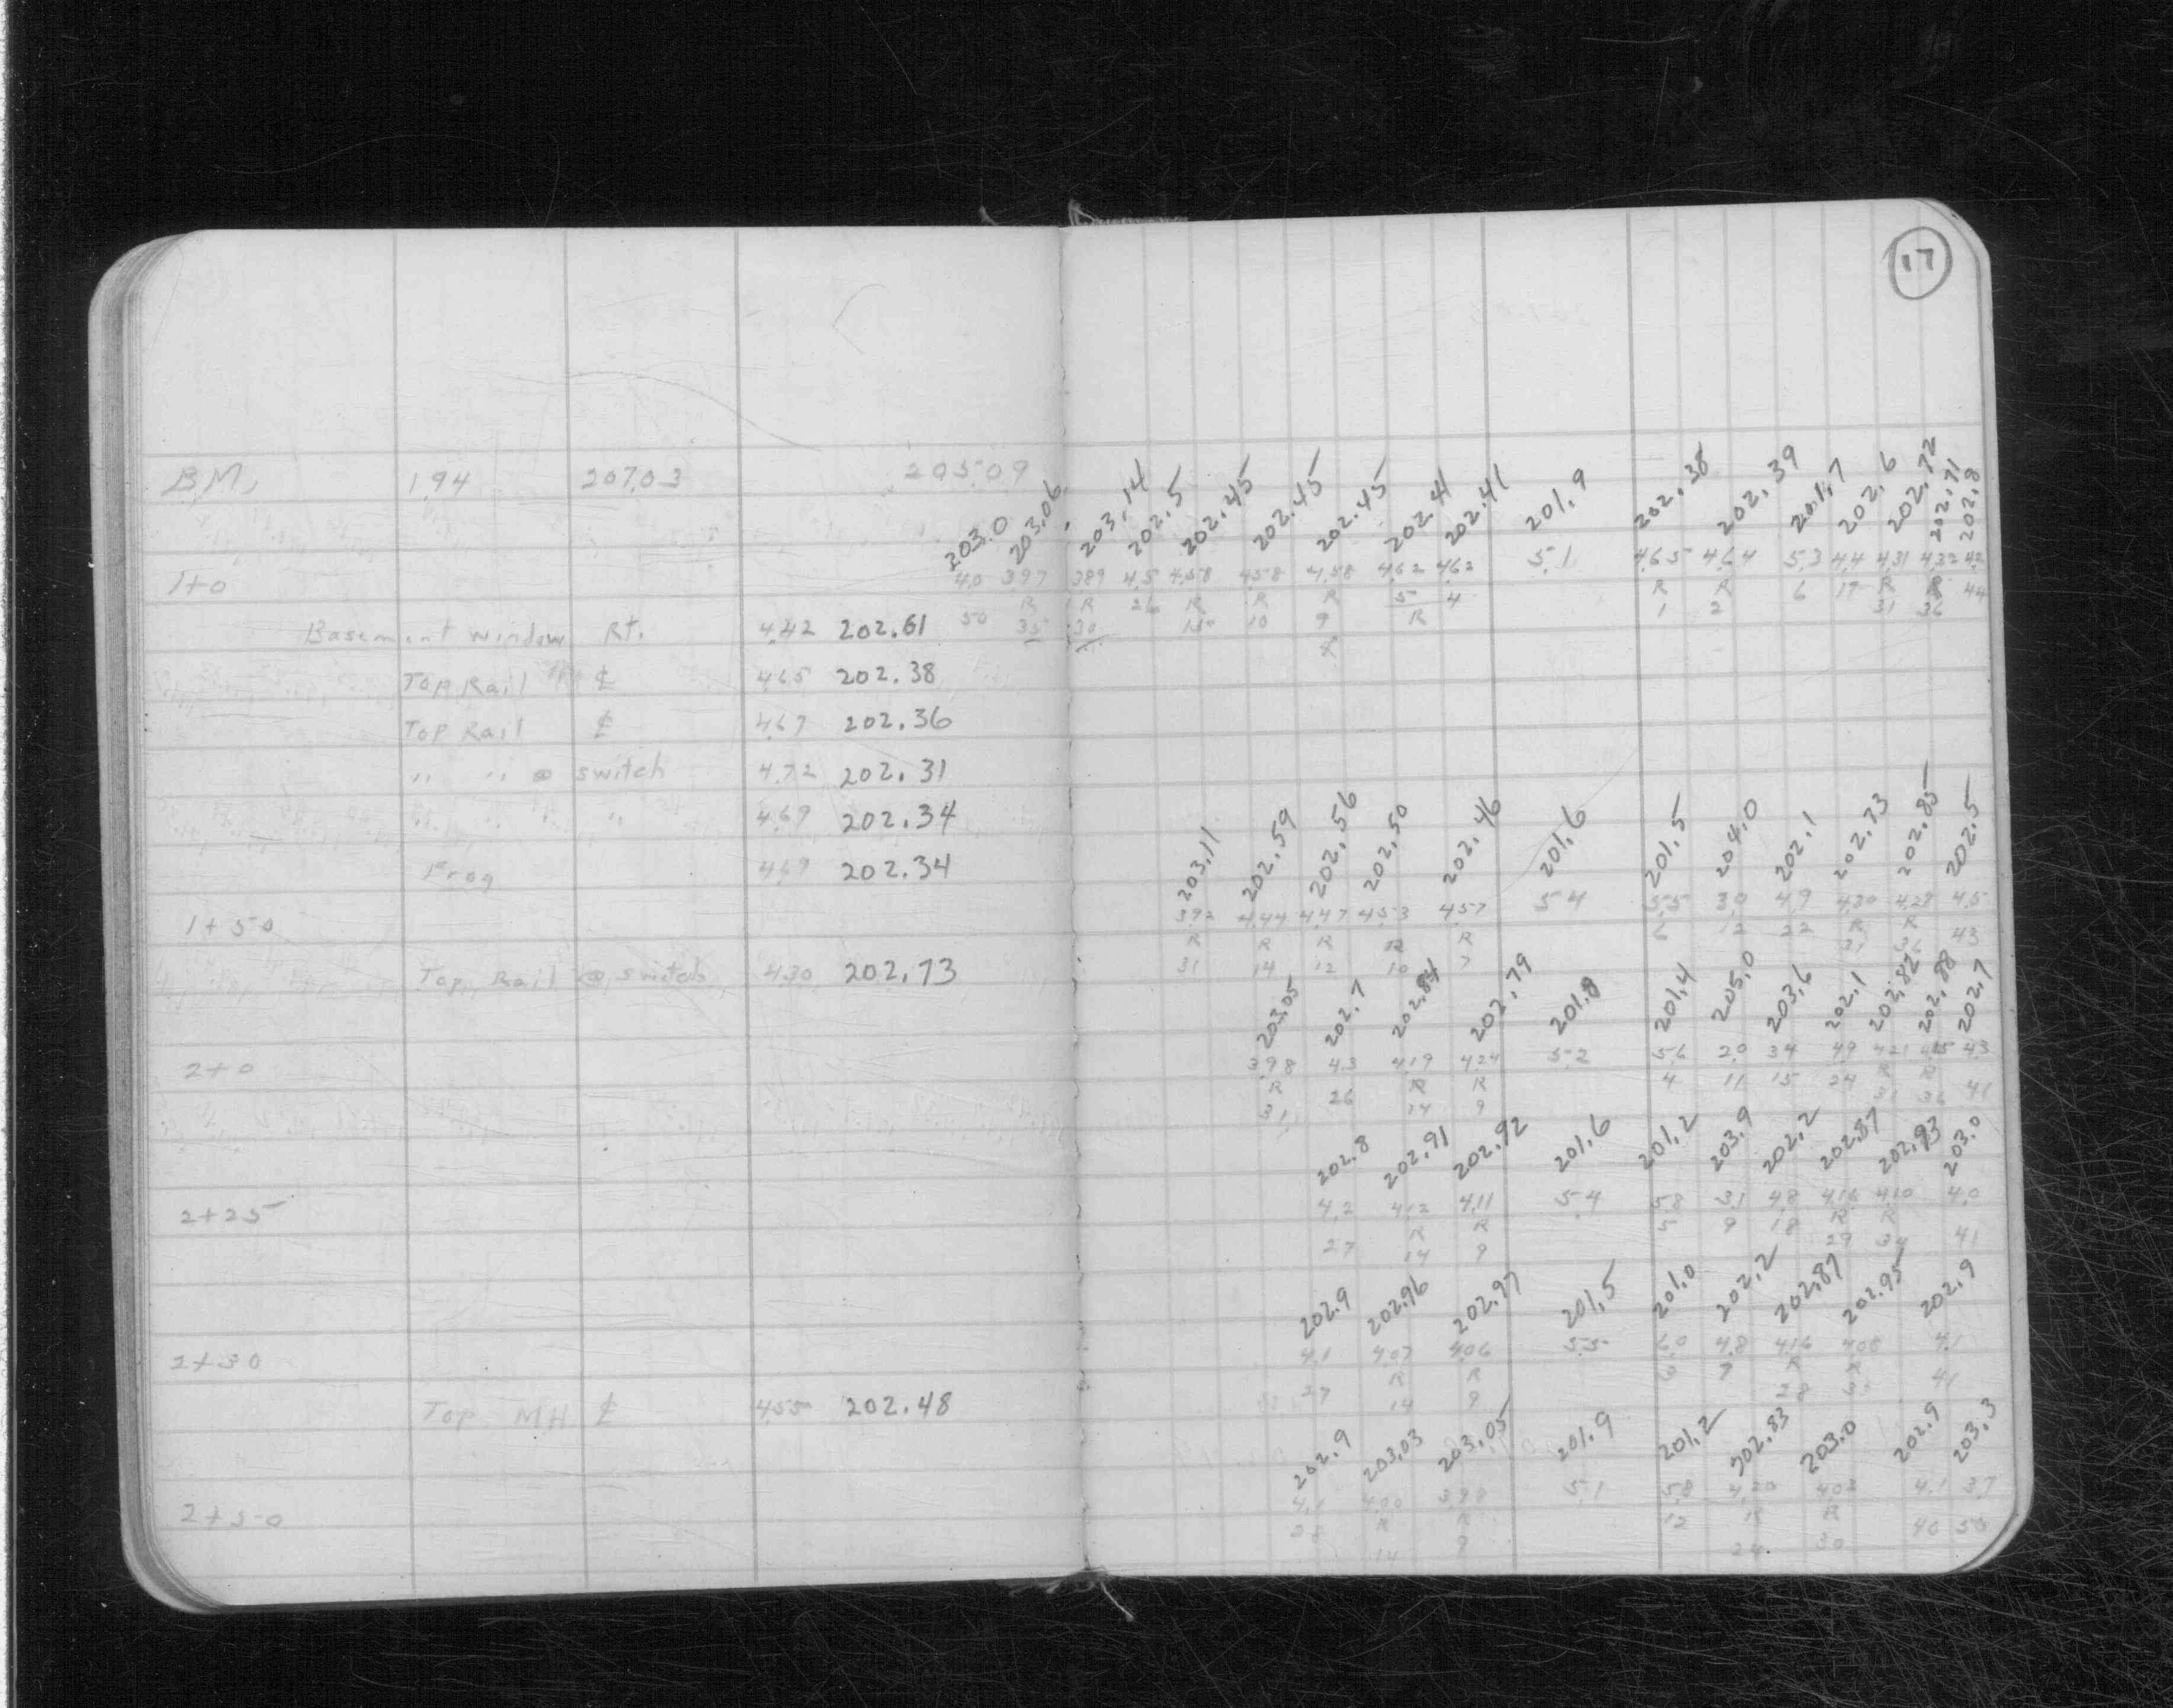 17
B.M. 1.94 207.03 205.09
203.0 203.06 203.14 202.5 202.45 202.45 202.45 202.41 202.41 201.9 202.38 202.39 201.7 202.6 202.72 202.71 202.8
1+0 4.0 3.97 3.89 4.5 4.58 4.58 4.58 4.62 4.62 5.1 4.65 4.64 5.3 4.4 4.31 4.32 4.2
R R 26 R R R 5 4 R R 6 17 R R 44
Basement window Rt. 4.42 202.61 50 35 30 10 9 R 1 2 31 36
Top Rail ⅊ 4.65 202.38
Top Rail ⅊ 4.67 202.36
" " @ switch 4.72 202.31
" " " " 4.69 202.34
Frog 4.69 202.34
203.11 202.59 202.56 202.50 202.46 201.6 201.5 204.0 202.1 202.73 202.85 202.5
1+50 3.92 4.44 4.47 4.53 4.57 5.4 5.5 3.0 4.9 4.30 4.28 4.5
R R R 12 R 6 12 22 R R 43
31 14 12 10 7 31 36
Top Rail @ switch 4.30 202.73
203.05 202.7 202.84 202.79 201.8 201.4 205.0 203.6 202.1 202.82 202.88 202.7
2+0 3.98 4.3 4.19 4.24 5.2 5.6 2.0 3.4 4.9 4.21 4.15 4.3
R 26 R R 4 11 15 24 R R 41
31 14 9 31 36
202.8 202.91 202.92 201.6 201.2 203.9 202.2 202.87 202.93 203.0
2+25 4.2 4.12 4.11 5.4 5.8 3.1 4.8 4.16 4.10 4.0
R R 5 9 18 R R
27 14 9 29 34 41
202.9 202.96 202.97 201.5 201.0 202.2 202.87 202.95 202.9
2+30 4.1 4.07 4.06 5.5 6.0 4.8 4.16 4.08 4.1
27 R R 3 7 R R 41
14 9 28 33
Top MH ⅊ 4.55 202.48
202.9 203.03 203.05 201.9 201.2 202.83 203.0 202.9 203.3
2+50 4.1 4.00 3.98 5.1 5.8 4.20 4.02 4.1 3.7
28 R R 12 R R 40 50
14 9 24 30